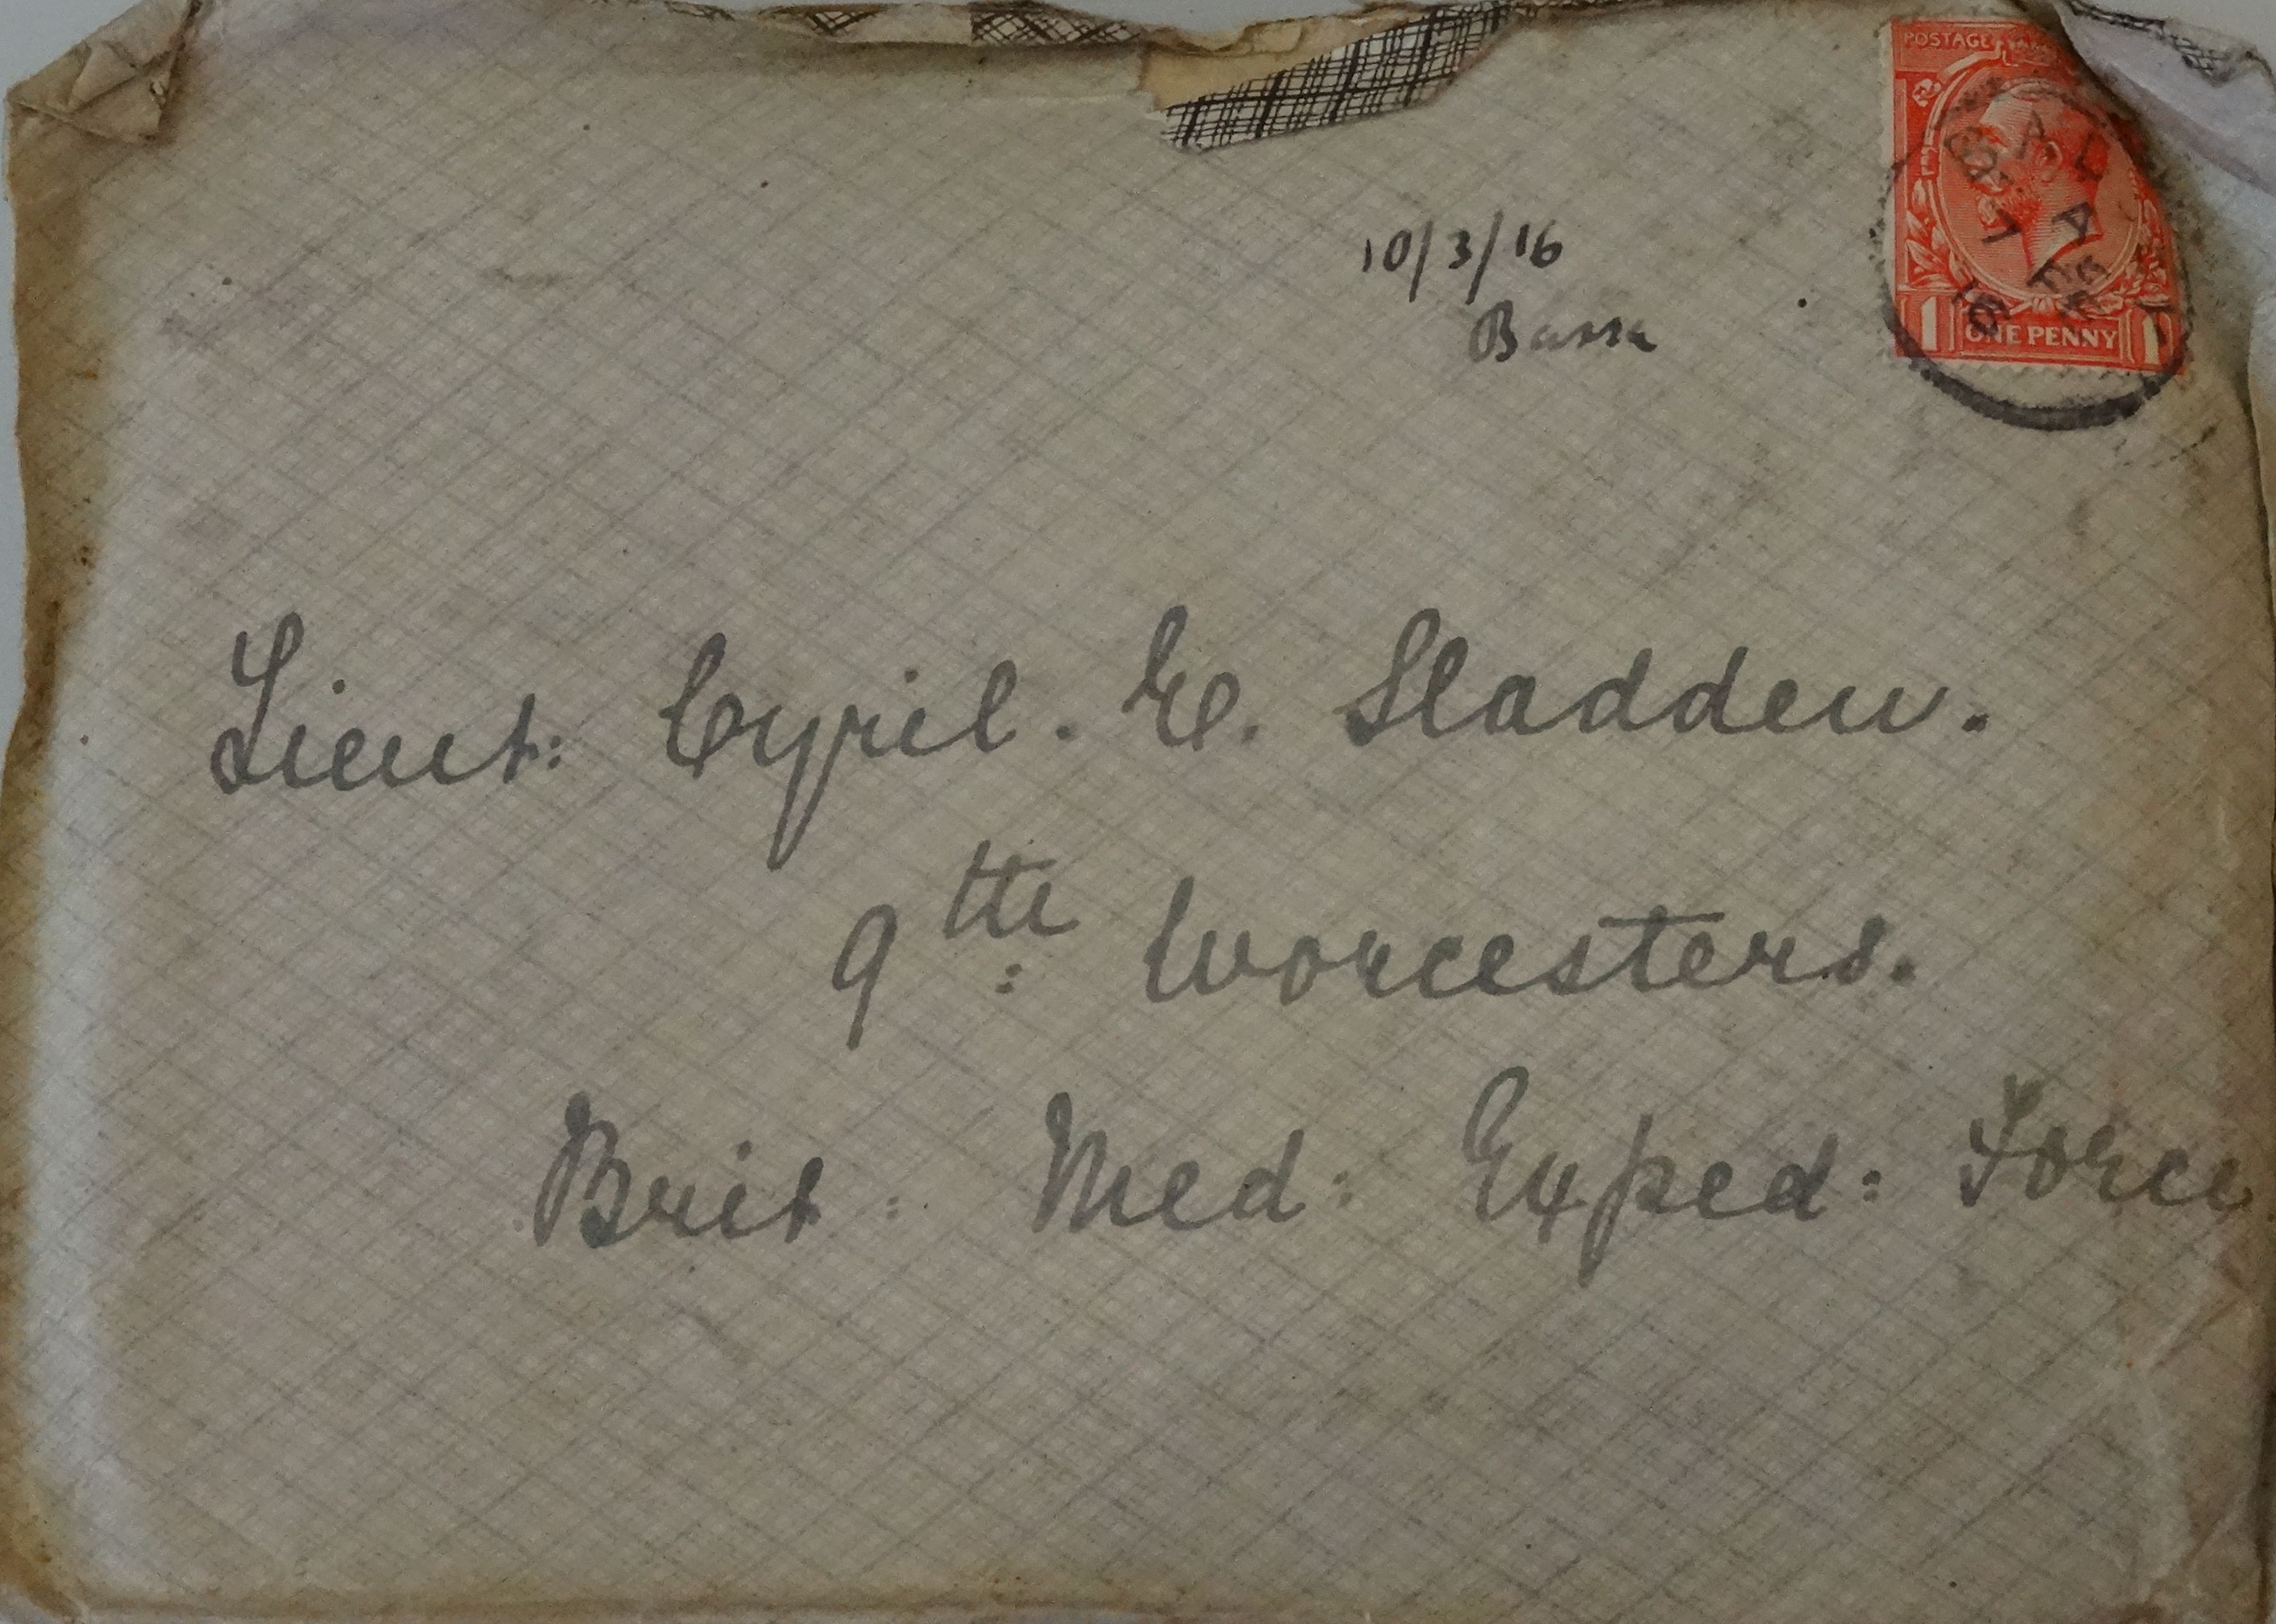 POSTAGE
10/3/16
Basra
1 ONE PENNY 1
Lieut: Cyril. E. Sladden.
9th: Worcesters.
Brit: Med: Exped: Force